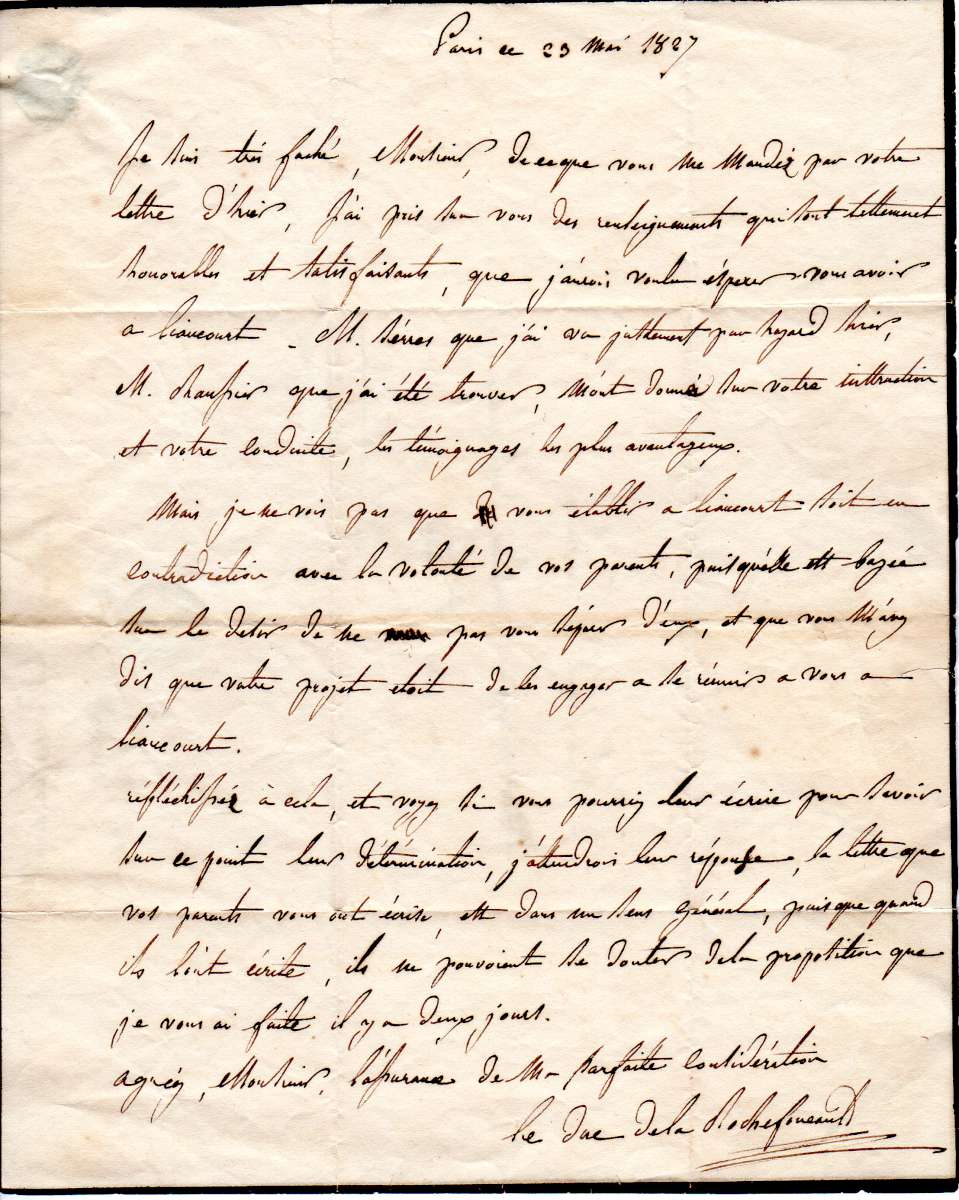 Paris ce 23 Mai 1827
Je suis très faché, Monsieur, de ce que vous me Mandez par votre
lettre d'hier, J'ai pris sur vous des renseignements qui sont tellement
honorables et satisfaisants, que j'aurois voulu éspérer vous avoir
a liancourt - M. Serres que j'ai vu justement par hazard hier,
M. chaussier que j'ai été trouver, M'ont donné sur votre instruction
et votre conduite, les témoignages les plus avantageux.
Mais je ne vois pas que vous établir a liancourt soit en
contradiction avec la volonté de vos parents, puisqu'élle est bazée
sur le desir de ne pas vous séparer d'eux, et que vous M'avez
dit que votre projet etoit de les engager a se réunir a vous a
liancourt.
réfléchissez à cela, et voyez si vous pourriez leur écrire pour savoir
sur ce point leur détérmination, j'attendrois leur réponse, la lettre que
vos parents vous ont écrite est dans un sens général, puisque quand
ils l'ont écrite, ils ne pouvoient se douter de la proposition que
je vous ai faite il y a deux jours.
agréez, Monsieur, l'assurance de Ma Parfaite considération
le duc de la Rochefoucauld